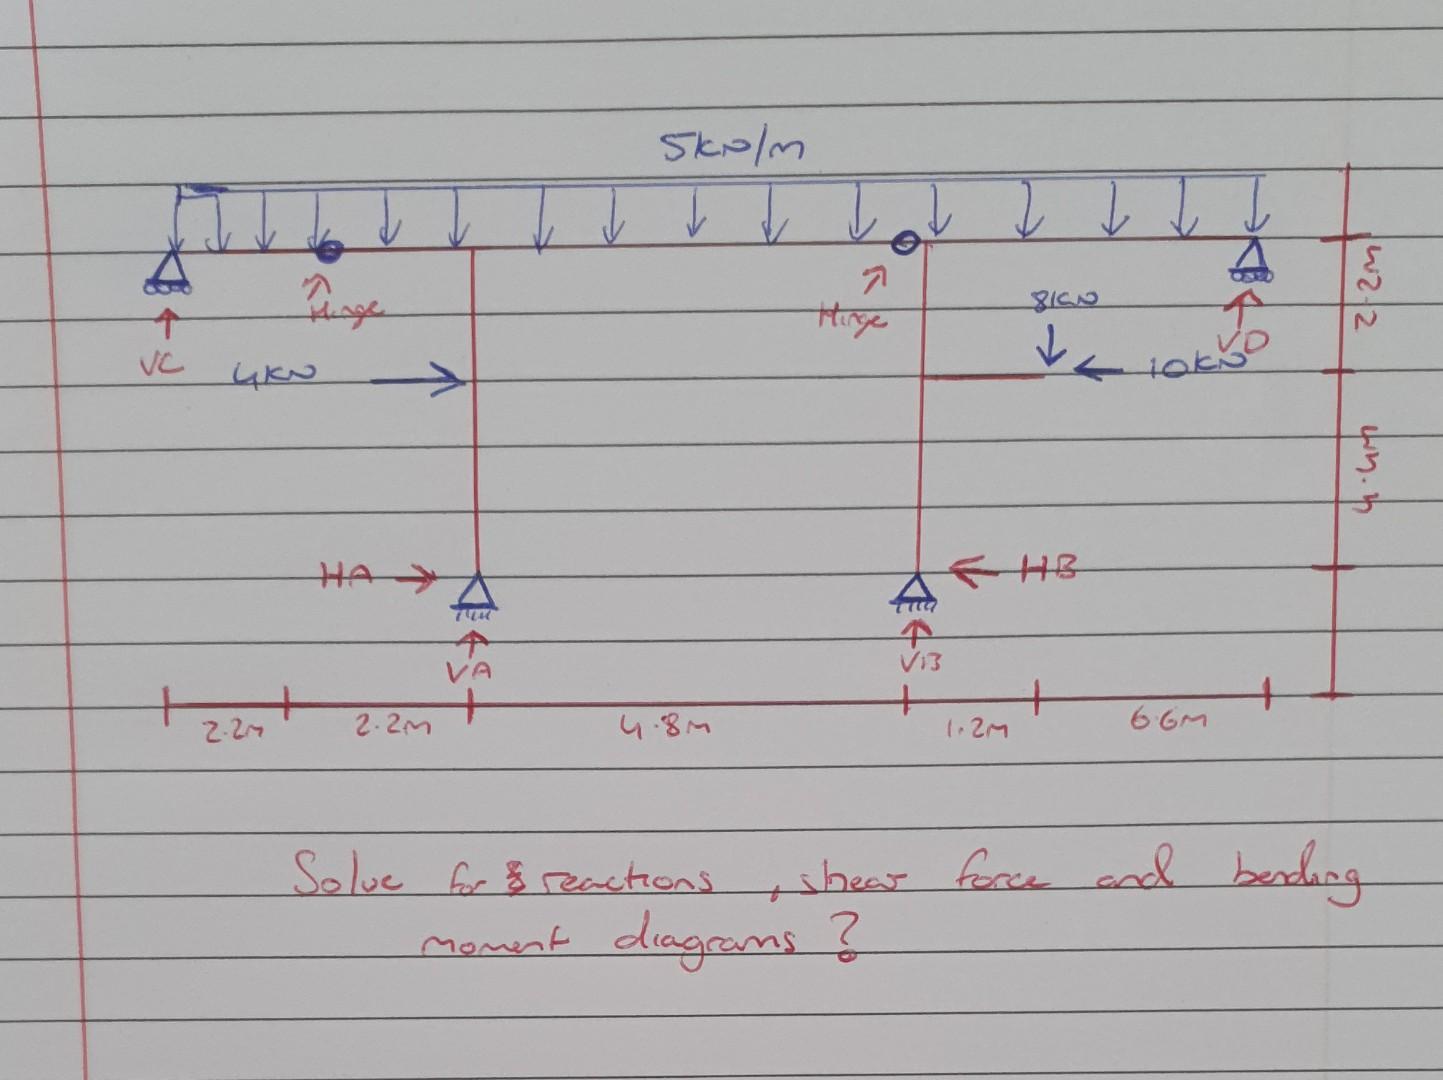 5kN/m
Hinge
Hinge
8KN
VC
VD
4KN
10KN
2.2m
3.4m
HA
HB
VA
VB
2.2m
2.2m
4.8m
1.2m
6.6m
Solve for reactions, shear force and bending
moment diagrams?